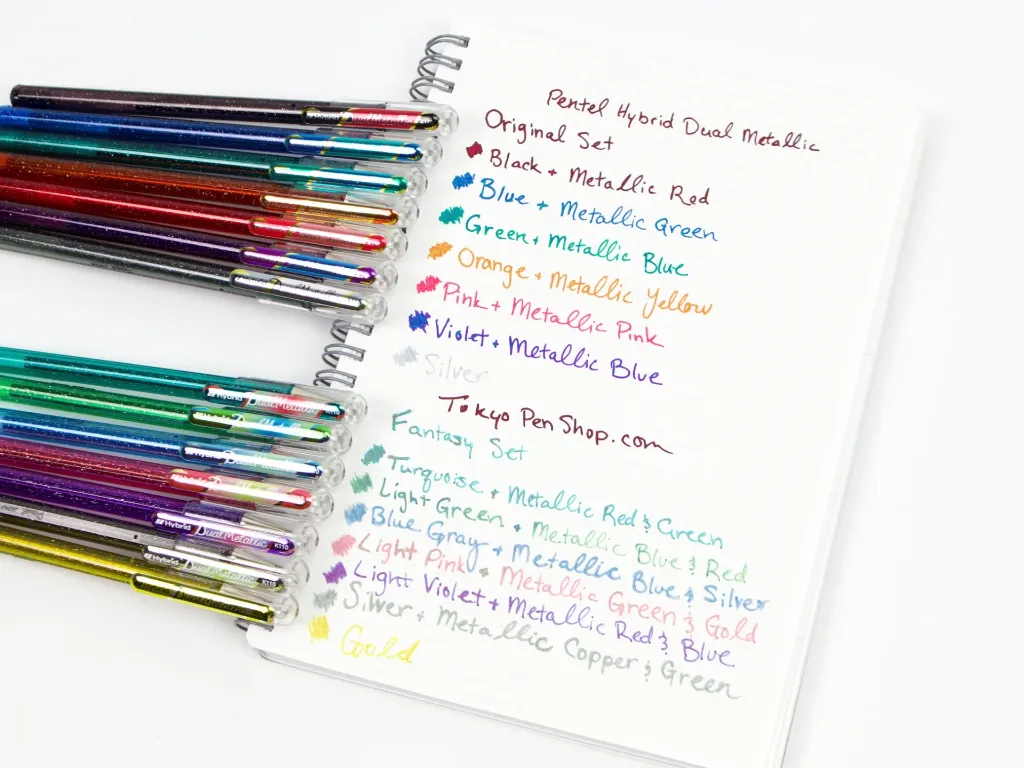 Pentel Hybrid Dual Metallic
Original Set
Black + Metallic Red
Blue + Metallic Green
Green + Metallic Blue
Orange + Metallic Yellow
Pink + Metallic Pink
Violet + Metallic Blue
Silver
TokyoPenShop.com
Fantasy Set
Turquoise + Metallic Red & Green
Light Green + Metallic Blue & Red
Blue Gray + Metallic Blue & Silver
Light Pink + Metallic Green & Gold
Light Violet + Metallic Red & Blue
Silver + Metallic Copper & Green
Gold
Hybrid DualMetallic
Hybrid DualMetallic
Hybrid DualMetallic K110
Hybrid DualMetallic K110